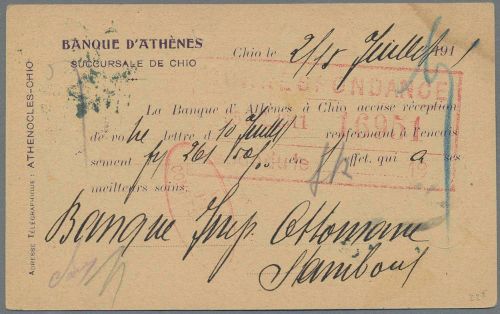 BANQUE D'ATHÈNES
SUCCURSALE DE CHIO
Chio le 2/15 Juillet 1911
CORRESPONDANCE
La Banque d'Athènes à Chio accuse réception
16951
de votre lettre d 10 Juillet renfermant à l'encais
sement effet, qui a ses
meilleurs soins.
Banque Imp. Ottomane
Stamboul
ADRESSE TÉLÉGRAPHIQUE: ATHENOCLES-CHIO